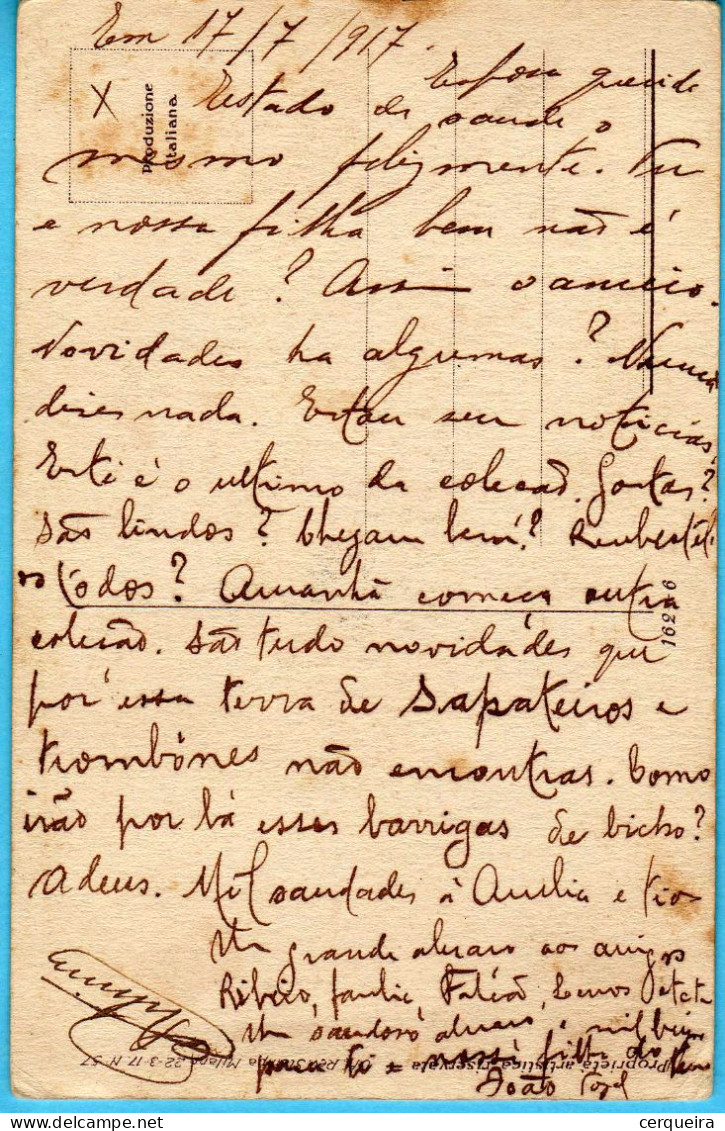 Em 17/7/917.
X
Produzione
Italiana
Esposa querida
Estado de saude o
mesmo felizmente. Tu
e nossa filha bem não é
verdade? Assim o anceio.
Novidades ha algumas? Nunca
dizes nada. Estou sem noticias.
Este é o ultimo da coleção. Gostas?
São lindos? Chegam bem?
todos? Amanhã começa outra
coleção. São tudo novidades que
por essa terra de sapateiros e
trombônes não encontras. Como
irão por lá esses barrigas de bicho?
Adeus. Mil saudades á Amelia e tios
Um grande abraço aos amigos
Ribeiro, Falcão, Lemos etc
Um saudoso abraço e mil
para ti e nossa filha do teu
João
16226
Proprietà artistica riservata Milano 22-3-17 N° 57
cerqueira